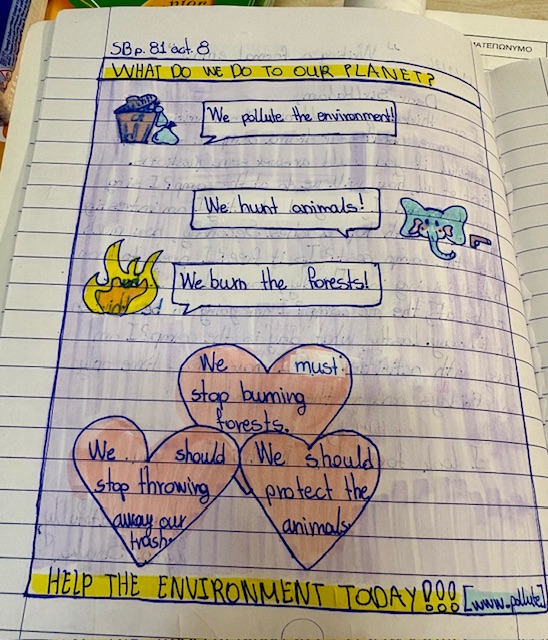 SB p. 81 act. 8
WHAT DO WE DO TO OUR PLANET?
We pollute the environment!
We hunt animals!
We burn the forests!
We must
stop burning
forests.
We should
stop throwing
away our
trash.
We should
protect the
animals.
HELP THE ENVIRONMENT TODAY!!! [www.pollute]
ΑΤΕΠΩΝΥΜΟ